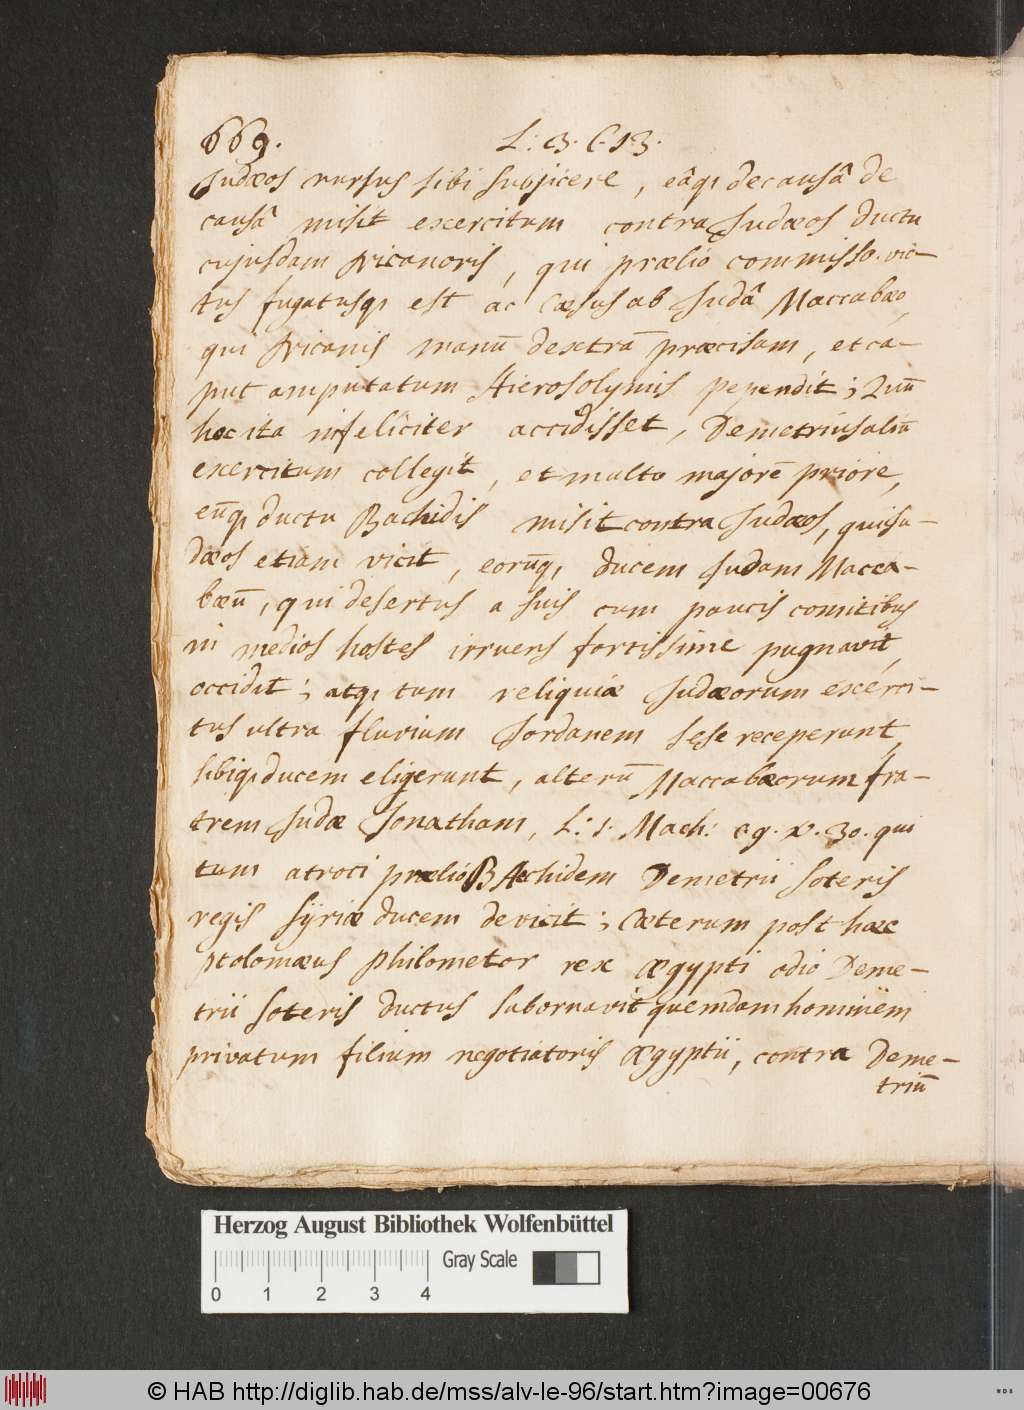 669. L: 3. C. 13.
Judæos rursus sibi subjicere, eâq; de causâ de
causâ misit exercitum contra Judæos ductu
cujusdam Nicanoris, qui prælio commisso vic-
tus fugatusq; est ac cæsus ab Judâ Maccabæo,
qui Nicanis manū dextrā præcisam, et ca-
put amputatum Hierosolymis pependit; Quū
hoc ita infeliciter accidisset, Demetrius aliū
exercitum collegit, et multo majorē priore,
eūq; ductu Bachidis misit contra Judæos, qui Ju-
dæos etiam vicit, eorūq; ducem Judam Macca-
bæū, qui desertus a suis cum paucis comitibus
in medios hostes irruens fortissime pugnavit,
occidit; atq; tum reliquiæ Judæorum exerci-
tus ultra fluvium Jordanem sese receperunt,
sibiq; ducem eligerunt, alterū Maccabæorum fra-
trem Judæ Jonatham, L: 1. Mach: c 9. v. 30. qui
tum atroci prælio BAchidem Demetrii Soteris
regis Syriæ ducem devicit; Cæterum post hæc
Ptolomæus Philometor rex Ægypti odio Deme-
trii Soteris ductus subornavit quemdam hominem
privatum filium negotiatoris Ægyptii, contra Deme-
triū
Herzog August Bibliothek Wolfenbüttel
Gray Scale
0 1 2 3 4
© HAB http://diglib.hab.de/mss/alv-le-96/start.htm?image=00676